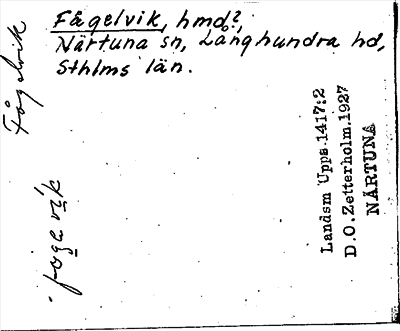 Fågelvik, hmd?,
Närtuna sn, Långhundra hd,
Sthlms län.
Fågelvik
foge vik
Landsm Upps.1417:2
D.O.Zetterholm.1927
NÄRTUNA